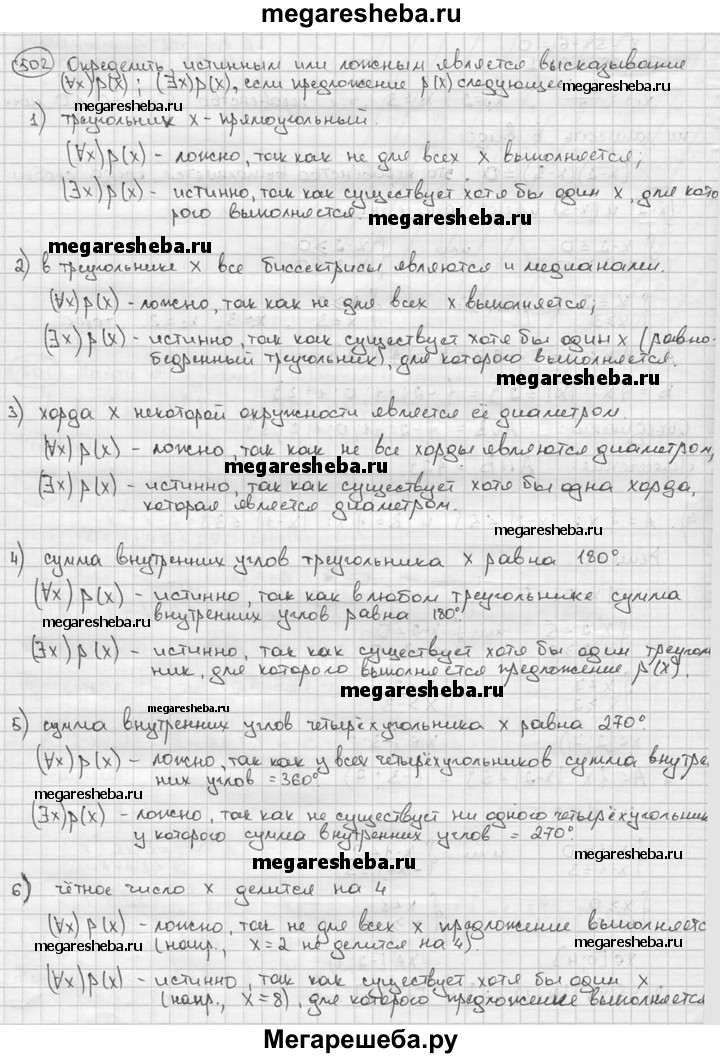 megaresheba.ru
502 Определить, истинным или ложным является высказывание
(∀x)p(x); (∃x)p(x), если предложение p(x) следующее
megaresheba.ru megaresheba.ru
1) треугольник x - прямоугольный.
(∀x)p(x) - ложно, так как не для всех x выполняется;
(∃x)p(x) - истинно, так как существует хотя бы один x, для кото
рого выполняется. megaresheba.ru
megaresheba.ru
2) в треугольнике x все биссектрисы являются и медианами.
(∀x)p(x) - ложно, так как не для всех x выполняется;
(∃x)p(x) - истинно, так как существует хотя бы один x (равно-
бедренный треугольник), для которого выполняется.
megaresheba.ru
3) хорда x некоторой окружности является её диаметром.
(∀x)p(x) - ложно, так как не все хорды являются диаметром,
megaresheba.ru
(∃x)p(x) - истинно, так как существует хотя бы одна хорда,
которая является диаметром.
megaresheba.ru
4) сумма внутренних углов треугольника x равна 180°
(∀x)p(x) - истинно, так как в любом треугольнике сумма
внутренних углов равна 180°.
megaresheba.ru
(∃x)p(x) - истинно, так как существует хотя бы один треугол
ник, для которого выполняется предложение p(x).
megaresheba.ru
megaresheba.ru
5) сумма внутренних углов четырёхугольника x равна 270°
(∀x)p(x) - ложно, так как у всех четырёхугольников сумма внутре
них углов = 360°
megaresheba.ru
(∃x)p(x) - ложно, так как не существует ни одного четырёхугольник
у которого сумма внутренних углов = 270°
megaresheba.ru
6) чётное число x делится на 4
megaresheba.ru
(∀x)p(x) - ложно, так не для всех x предложение выполняетс
(напр., x=2 не делится на 4).
megaresheba.ru megaresheba.ru
(∀x)p(x) - истинно, так как существует хотя бы один x
(напр., x=8), для которого предложение выполняется
Мегарешеба.ру